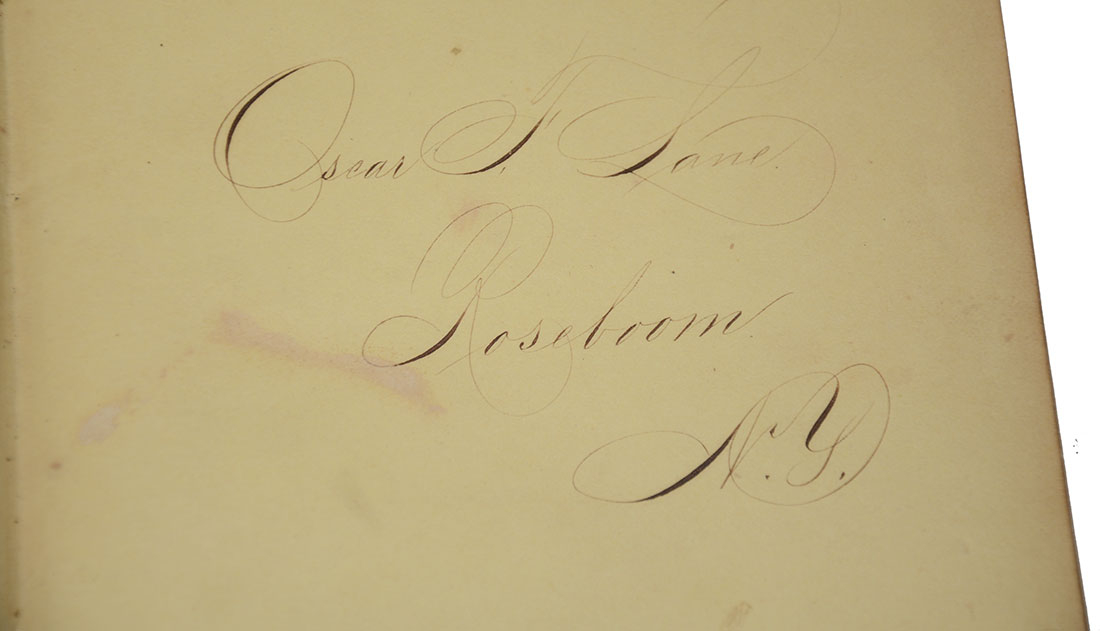 Oscar F. Lane.
Roseboom.
N.Y.